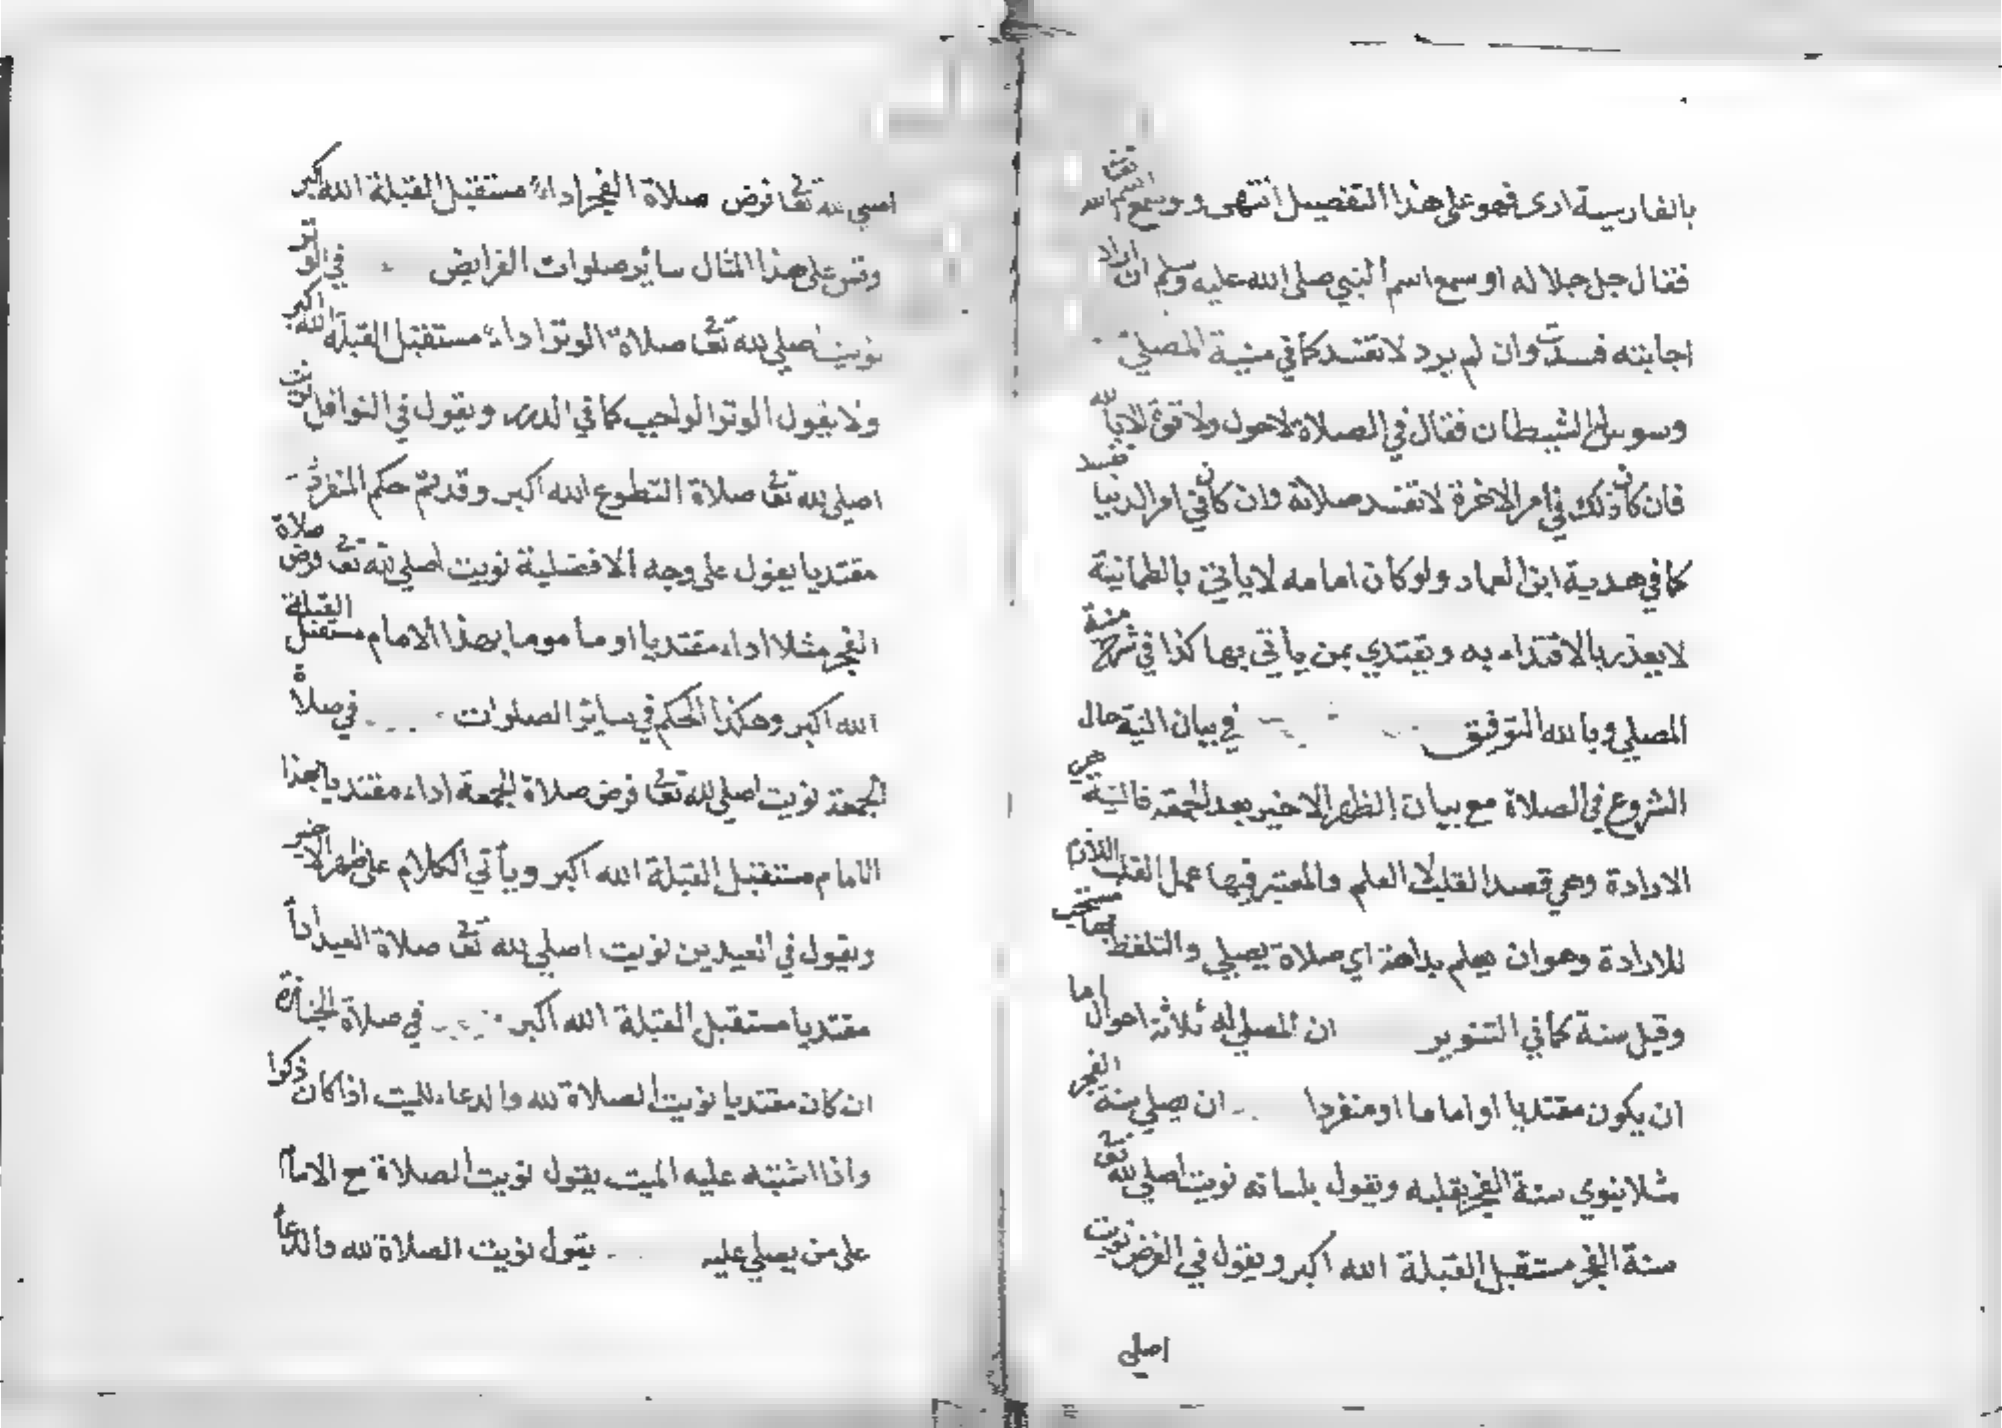 بالفارسية ارى فهو على هذا التفصيل انتهى ولو سمع اسم الله
فقال جل جلاله او سمع اسم النبي صلى الله عليه وسلم ان اراد
اجابته فسدت وان لم يرد لا تفسد كما في منية المصلي
وسوس الشيطان فقال في الصلاة لا حول ولا قوة الا بالله
فان كان ذلك في امر الاخرة لا تفسد صلاته وان كان في امر الدنيا تفسد
كما في هدية ابن العماد ولو كان امامه لا ياتي بالطمانية
لا يعذر بالاقتداء به ويقتدي بمن يأتي بها كذا في شرح منية
المصلي وبالله التوفيق في بيان النية حال
الشروع في الصلاة مع بيان الظهر الاخير بعد الجمعة فالنية هي
الارادة وهي قصد القلب لا العلم والمعتبر فيها عمل القلب اللازم
للارادة وهو ان يعلم بداهة اي صلاة يصلي والتلفظ بها مستحب
وقيل سنة كما في التنوير ان المصلي له ثلاثة احوال اما
ان يكون مقتديا او اماما او منفردا ان يصلي سنة الفجر
مثلا ينوي سنة الفجر بقلبه ويقول بلسانه نويت اصلي لله تعا
سنة الفجر مستقبل القبلة الله اكبر ويقول في الفرض نويت
اصلي
اصلي لله تعا فرض صلاة الفجر اداء مستقبل القبلة الله اكبر
وقس على هذا المثال سائر صلوات الفرايض في الوتر
نويت اصلي لله تعا صلاة الوتر اداء مستقبل القبلة الله اكبر
ولا يقول الوتر الواجب كما في الدرر ويقول في النوافل نويت
اصلي لله تعا صلاة التطوع الله اكبر وقد تم حكم المنفرد
مقتديا يقول على وجه الافضلية نويت اصلي لله تعا فرض صلاة
الفجر مثلا اداء مقتديا او ماموما بهذا الامام مستقبل القبلة
الله اكبر وهكذا الحكم في سائر الصلوات في صلاة
الجمعة نويت اصلي لله تعا فرض صلاة الجمعة اداء مقتديا بهذا
الامام مستقبل القبلة الله اكبر ويأتي الكلام على ظهر الاخير
ويقول في العيدين نويت اصلي لله تعا صلاة العيد اداأ
مقتديا مستقبل القبلة الله اكبر في صلاة الجنازة
ان كان مقتديا نويت الصلاة لله والدعاء للميت اذا كان ذكرا
واذا اشتبه عليه الميت يقول نويت الصلاة مع الامام
على من يصلي عليه يقول نويت الصلاة لله والدعأ